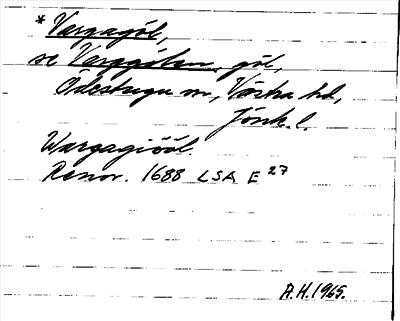 * Vargagöl,
se Varggölen, göl,
Ödestugu sn, Västra hd,
Jönk. l.
Wargagiööl.
Renov. 1688 LSA E 27
A.H. 1965.